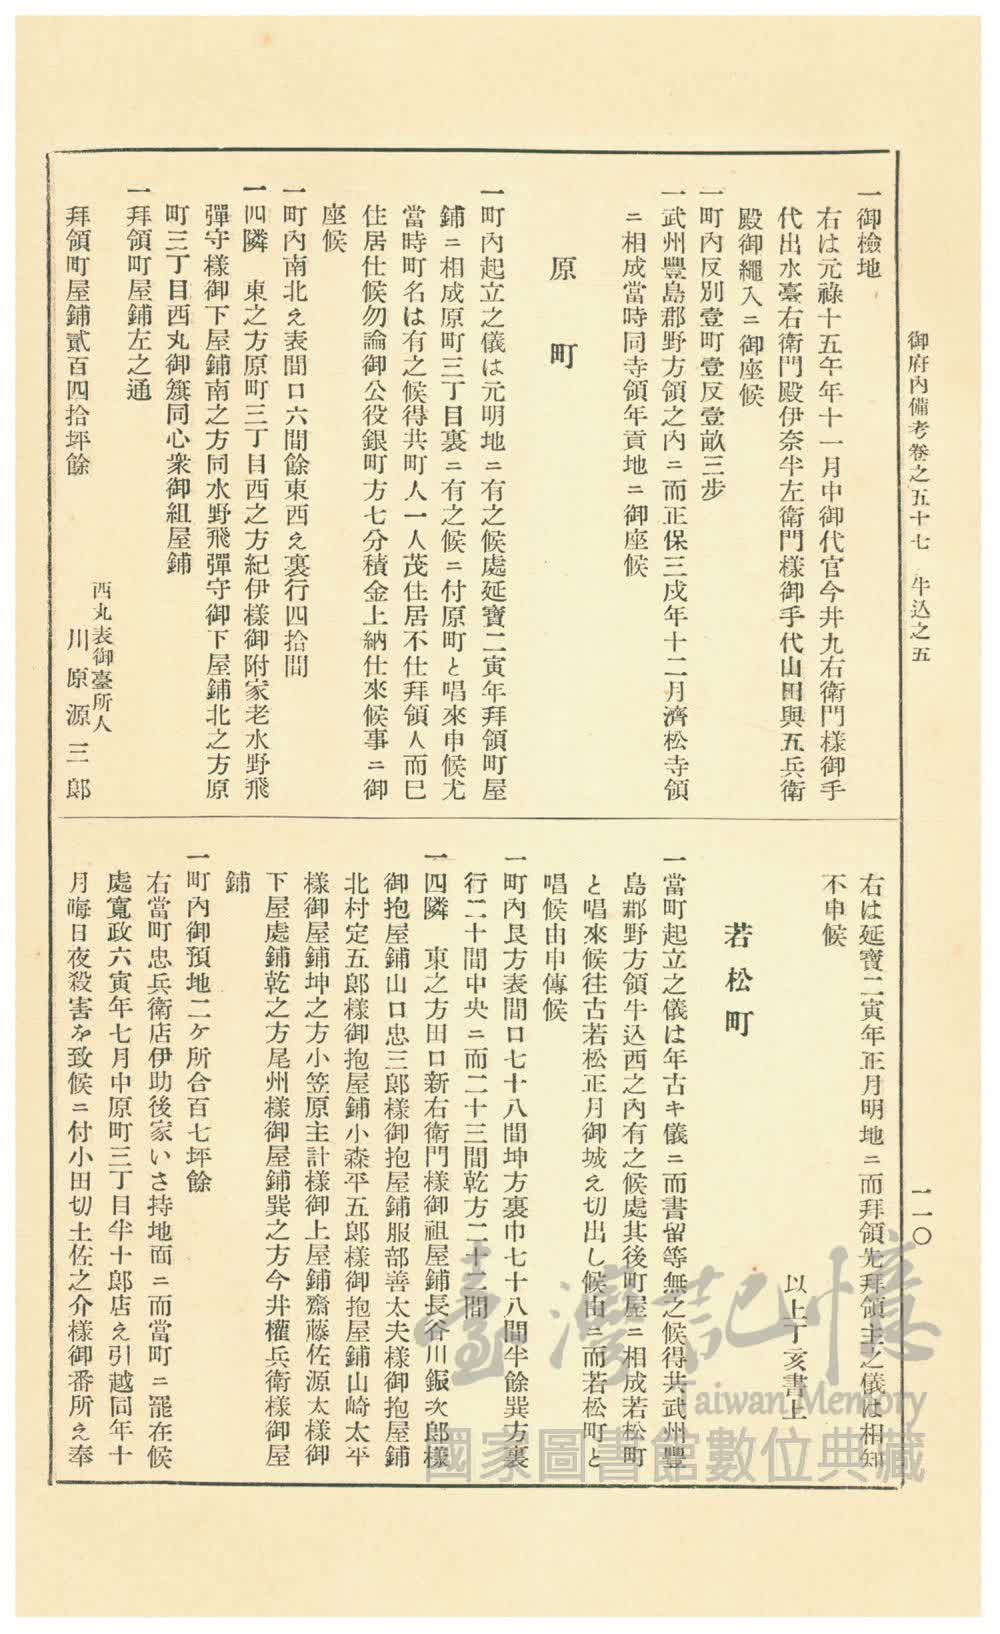 御府內備考卷之五十七　牛込之五
一一〇
一御檢地
右は元祿十五午年十一月中御代官今井九右衛門樣御手
代出水臺右衛門殿伊奈半左衛門樣御手代山田與五兵衛
殿御繩入ニ御座候
一町內反別壹町壹反壹畝三步
一武州豐島郡野方領之內ニ而正保三戌年十二月濟松寺領
ニ相成當時同寺領年貢地ニ御座候
原町
一町內起立之儀は元明地ニ有之候處延寶二寅年拜領町屋
鋪ニ相成原町三丁目裏ニ有之候ニ付原町と唱來申候尤
當時町名は有之候得共町人一人茂住居不仕拜領人而已
住居仕候勿論御公役銀町方七分積金上納仕來候事ニ御
座候
一町內南北え表間口六間餘東西え裏行四拾間
一四隣　東之方原町三丁目西之方紀伊樣御附家老水野飛
彈守樣御下屋鋪南之方同水野飛彈守御下屋鋪北之方原
町三丁目西丸御簱同心衆御組屋鋪
一拜領町屋鋪左之通
西丸表御臺所人
拜領町屋鋪貳百四拾坪餘　川原源三郎
右は延寶二寅年正月明地ニ而拜領先拜領主之儀は相知
不申候
以上丁亥書上
若松町
一當町起立之儀は年古キ儀ニ而書留等無之候得共武州豐
島郡野方領牛込西之內有之候處其後町屋ニ相成若松町
と唱來候往古若松正月御城え切出し候由ニ而若松町と
唱候由申傳候
一町內艮方表間口七十八間坤方裏巾七十八間半餘巽方裏
行二十間中央ニ而二十三間乾方二十二間
一四隣　東之方田口新右衛門樣御祖屋鋪長谷川鋠次郎樣
御抱屋鋪山口忠三郎樣御抱屋鋪服部善太夫樣御抱屋鋪
北村定五郎樣御抱屋鋪小森平五郎樣御抱屋鋪山崎太平
樣御屋鋪坤之方小笠原主計樣御上屋鋪齋藤佐源太樣御
下屋處鋪乾之方尾州樣御屋鋪巽之方今井權兵衛樣御屋
鋪
一町內御預地二ケ所合百七坪餘
右當町忠兵衛店伊助後家いさ持地面ニ而當町ニ罷在候
處寬政六寅年七月中原町三丁目半十郎店え引越同年十
月晦日夜殺害を致候ニ付小田切土佐之介樣御番所え奉
臺灣記憶
Taiwan Memory
國家圖書館數位典藏